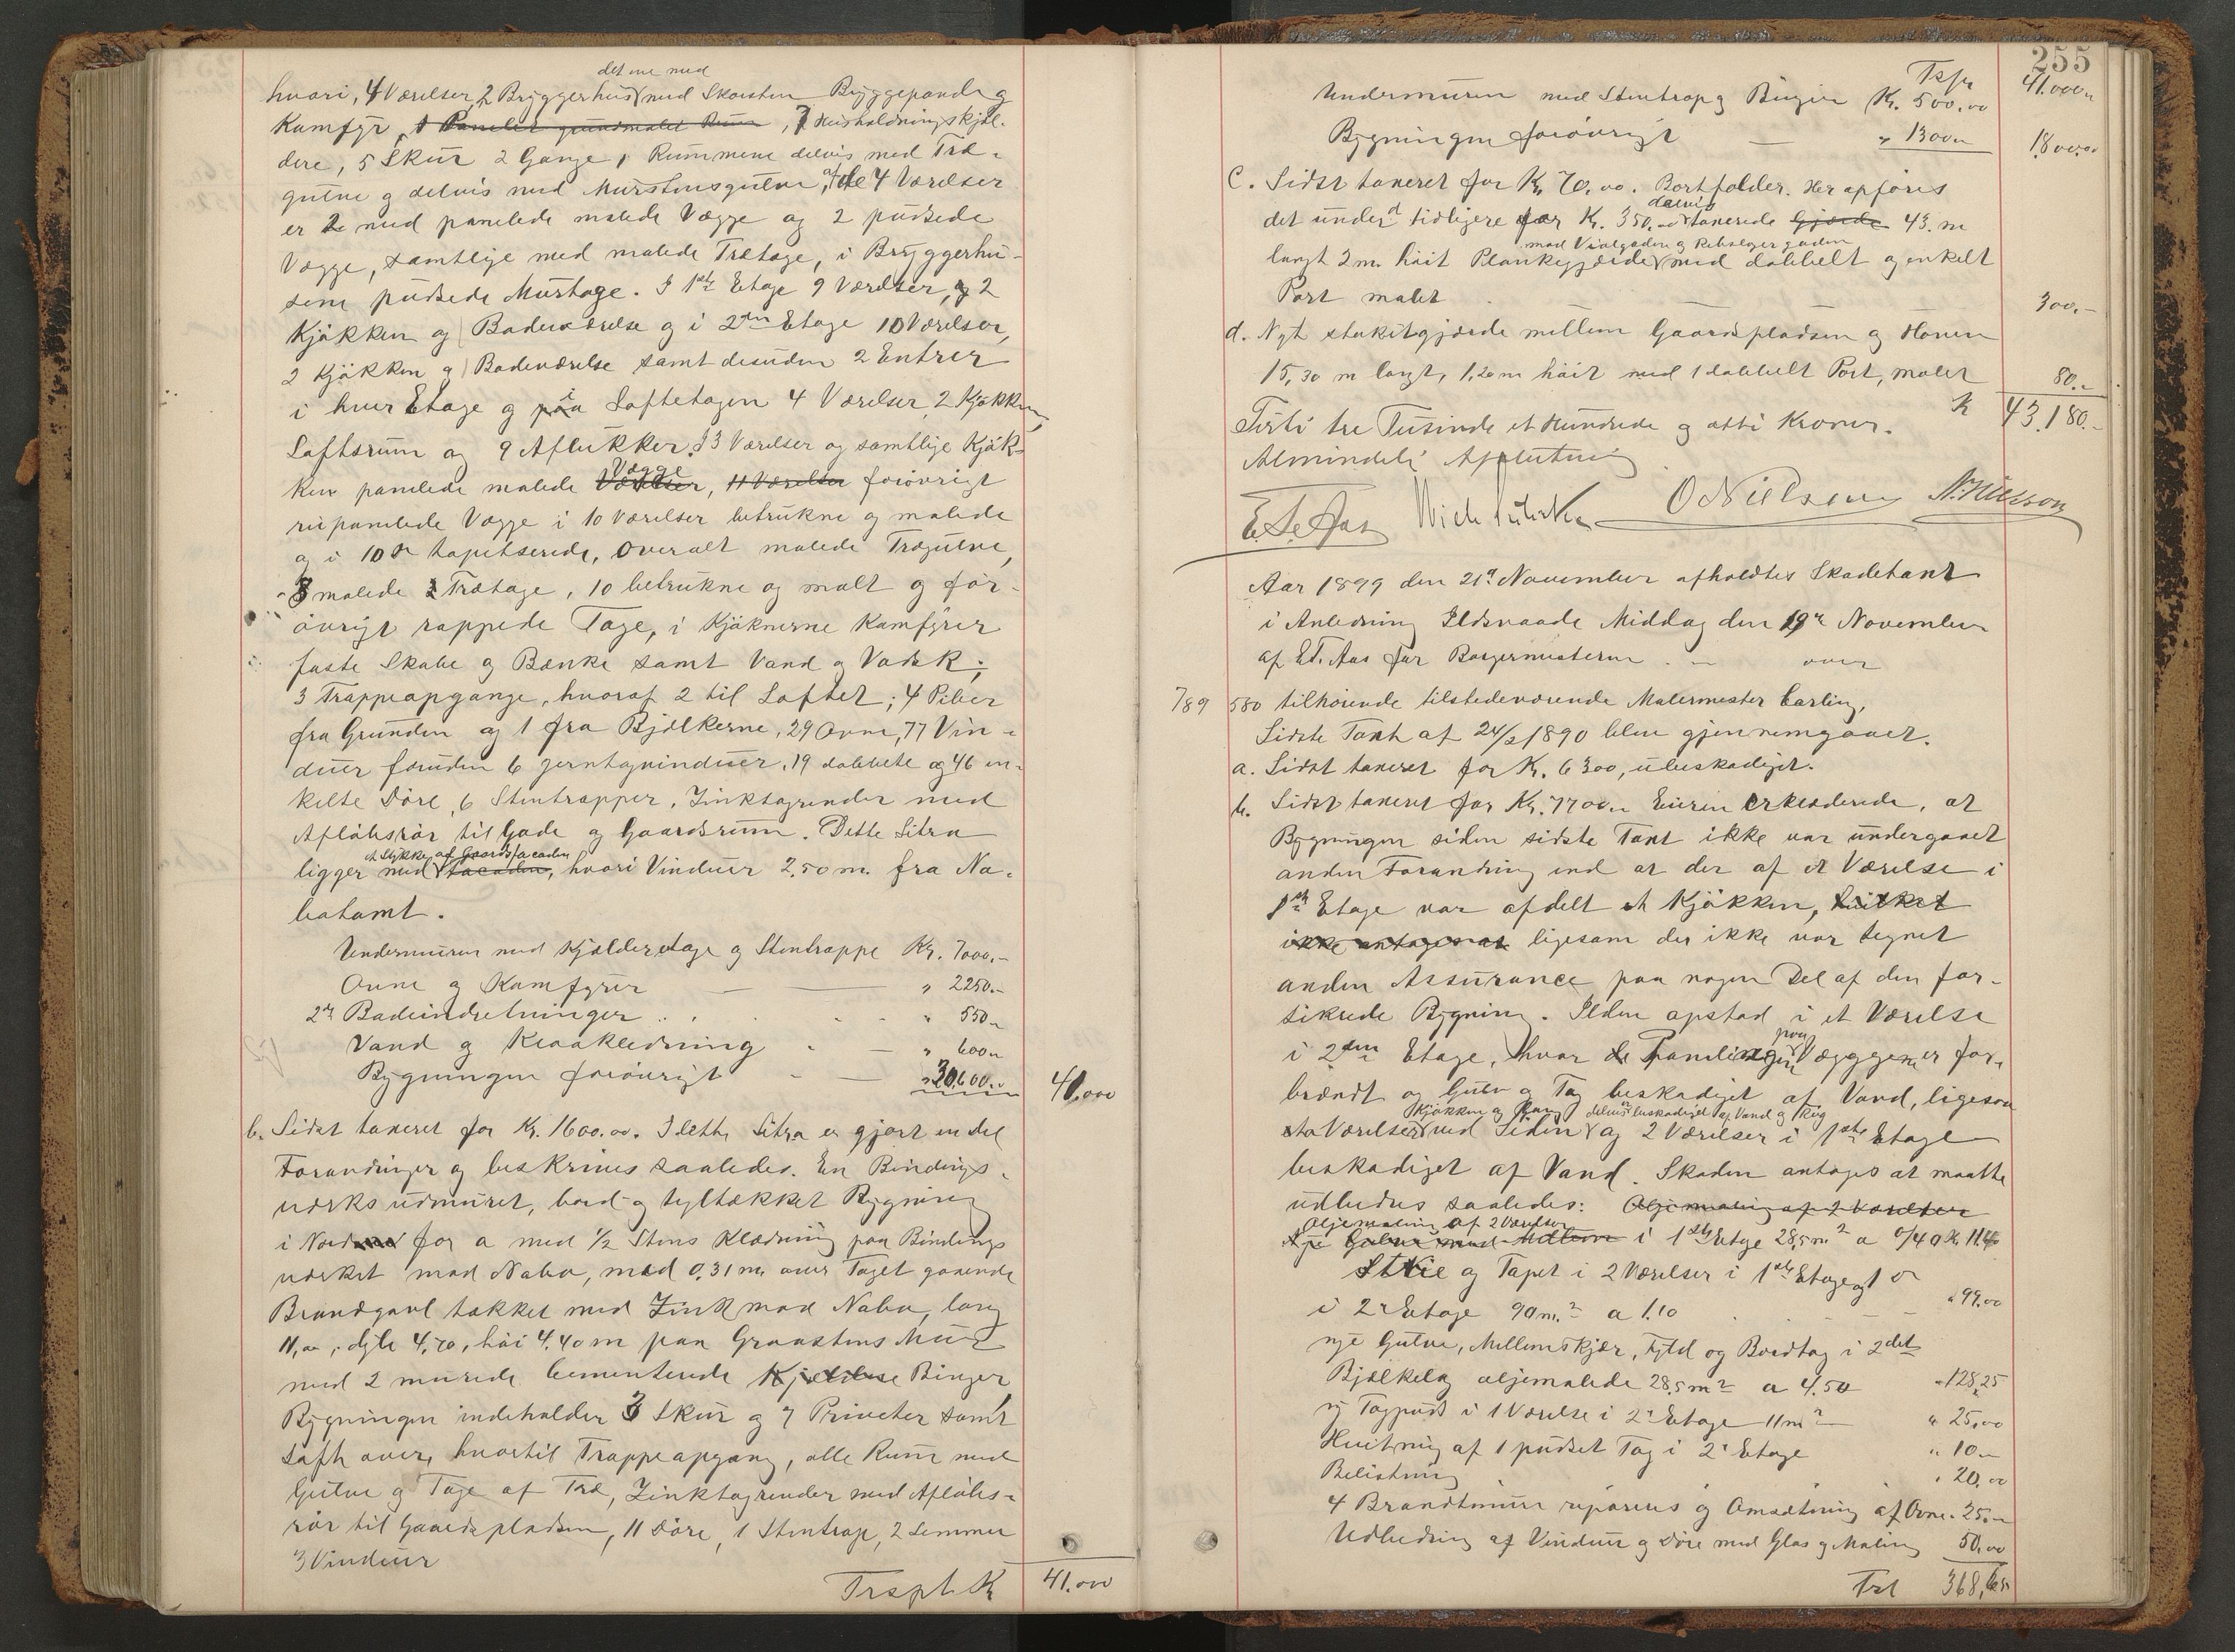 det ene med
hvori, 4 Værelser, 2 Bryggerhus med Skorsten Bryggepande og
Kamfyr, 1 Panelet grundmalet Rum, 7 Husholdningskjæl-
dere, 5 Skur 2 Gange, Rummene delvis med Træ-
gulve og delvis med Murstensgulve, af de 4 Værelser
er 2 med panelede malede Vægge og 2 pudsede
Vægge, samtlige med malede Trætage, i Bryggerhu-
sene pudsede Murtage. I 1ste Etage 9 Værelser, og 2
Kjøkken og 1 Badeværelse og i 2den Etage 10 Værelser,
2 Kjøkken og 1 Badeværelse samt desuden 2 Entrer
i hver Etage og paa i Loftetagen 4 Værelser, 2 Kjøkken,
Loftsrum og 9 Aflukker. I 3 Værelser og samtlige Kjøk-
ken panelede malede Værelser Vægge, 11 Værelser forøvrigt
rupanelede Vægge i 10 Værelser betrukne og malede
og i 10 tapetserede, overalt malede Trægulve,
8 malede Trætage, 10 betrukne og malt og for-
øvrigt rappede Tage, i Kjøknerne Kamfyrer
faste Skabe og Bænke samt Vand og Vadsk;
3 Trappeopgange, hvoraf 2 til Loftet; 4 Piber
fra Grunden og 1 fra Bjelkerne, 29 Ovne, 77 Vin-
duer foruden 6 Jerntagvinduer, 19 dobbelte og 46 en-
kelte Døre, 6 Stentrapper, Zinktagrender med
Afløbsrør til Gade og Gaardsrum. Dette Litra
et Stykke af Gaardsfacaden
ligger med Facaden, hvori Vinduer 2,50 m. fra Na-
botomt.
Undermuren med Kjælderetage og Stentrappe Kr. 7000.-
Ovne og Kamfyrer " 2250.-
2de Badeindretninger " 550.-
Vand og Kloakledning " 600.-
Bygningen forøvrigt " 30,600.- 41.000
b. Sidst taxeret for Kr. 1600.00. I dette Litra er gjort en del
Forandringer og beskrives saaledes. En Bindings-
værks udmuret, bord- og tegltækket Bygning
i Nord for a med 1/2 Stens Klædning paa Bindings
værket mod Nabo, med 0,31 m. over Taget gaaende
Brandgavl tækket med Zink mod Nabo, lang
11,00, dyb 4,70, høi 4,40 m paa Graastens Mur
med 2 murede Cementerede Kjældere Binger
Bygningen indeholder 3 Skur og 7 Priveter samt
Loft over, hvortil Trappeopgang, alle Rum med
Gulve og Tage af Træ, Zinktagrender med Afløbs-
rør til Gaardspladsen, 11 Døre, 1 Stentrap, 2 Lemmer
3 Vinduer
Trspt. Kr 41.000
255
Tspr 41.000.-
Undermuren med Stentrap og Binger Kr. 500.00
Bygningen forøvrigt " 1300.- 1800.00
C. Sidst taxeret for Kr. 70.00. Bortfalder. Her opføres
delvis
det under d tidligere for Kr. 350.- taxerede Gjærde 43. m
mod Vinlgaden og Rebslagergaden
langt 2 m. høit Plankegjærde med dobbelt og enkelt
Port malet 300.-
d. Nyt stakitgjærde mellem Gaardspladsen og Haven
15,30 m langt, 1,20 m høit med 1 dobbelt Port, malet 80.-
Kr 43.180.-
Firti tre Tusinde et Hundrede og otti Kroner.
Almindeli Afslutning
E. T. Aas O Nielsen N. Nilsson
Aar 1899 den 21de November afholdtes Skadetaxt
i Anledning Ildsvaade Middag den 19de November
af E.T. Aas for Borgermesteren over
7/89 580 tilhørende tilstedeværende Malermester Carling,
Sidste Taxt af 24/2 1890 blev gjennemgaaet.
a. Sidst taxeret for Kr. 6300, ubeskadiget.
b. Sidst taxeret for Kr. 7700.- Eieren erklærede, at
Bygningen siden sidste Taxt ikke var undergaaet
anden Forandring end at der af et Værelse i
1ste Etage var afdelt et Kjøkken, hvilket
ikke antages at ligesom der ikke var tegnet
anden Assurance paa nogen Del af den for-
sikrede Bygning. Ilden opstod i et Værelse
i 2den Etage, hvor Panelingen paa Væggene er for-
brændt og Gulv og Tag beskadiget af Vand, ligesom
Kjøkken og Gang delvis beskadiget af Vand og Røg
to Værelser ved Siden og 2 Værelser i 1ste Etage
beskadiget af Vand. Skaden antages at maatte
udbedres saaledes: Oljemaling af 2 Værelser
Oljemaling af 2 Værelser
Nye Gulve med Mellem i 1ste Etage 28,5 m2 a 0/40 Kr. 11.40
Strie og Tapet i 2 Værelser i 1ste Etage og 1
i 2 Etage 90 m.2 a 1.10 " 99.00
nye Gulve, Mellemskjær, Fyld og Bordtag i 2det
Bjelkelag oljemalede 28,5 m2 a 4.50 " 128,25
ny Tagpuds i 1 Værelse i 2 Etage 11 m2 " 25,00
Hvitning af 1 pudset Tag i 2 Etage " 10.-
Belistning " 20,00
4 Brandmure repareres og Omsætning af Ovne " 25.-
Udbedring af Vinduer og Døre med Glas og Maling 50,00
Trt 368,65